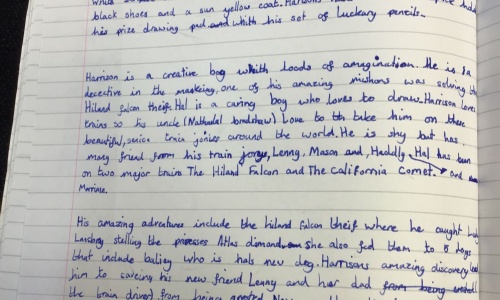 black shoes and a sun yellow coat. Harrisons
his prize drawing pad and whith his set of luckary pencils.
Harrison is a creative boy whith loods of amagination. He is a
detective in the makeing, one of his amazing mishons was solving the
Hiland falcon theif. Hal is a caring boy who loves to draw. Harrison loves
trains so his uncle (Nathadal bradshaw) Love to take him on these
beautiful, train jonies around the world. He is shy but has
many friend from his train jorny, Lenny, Mason and, Haddly. Hal has been
on two major trains The Hiland Falcon and The California Comet. and
Marriage.
His amazing adventures include the hiland falcon theif where he caught Lady
Lansbry stelling the Atlas diamond, she also fed them to 5 dogs
that include bailey who is hals new dog. Harrisons amazing discovery lead
him to saveing his new friend Lenny and her dad from being
the train driver from being